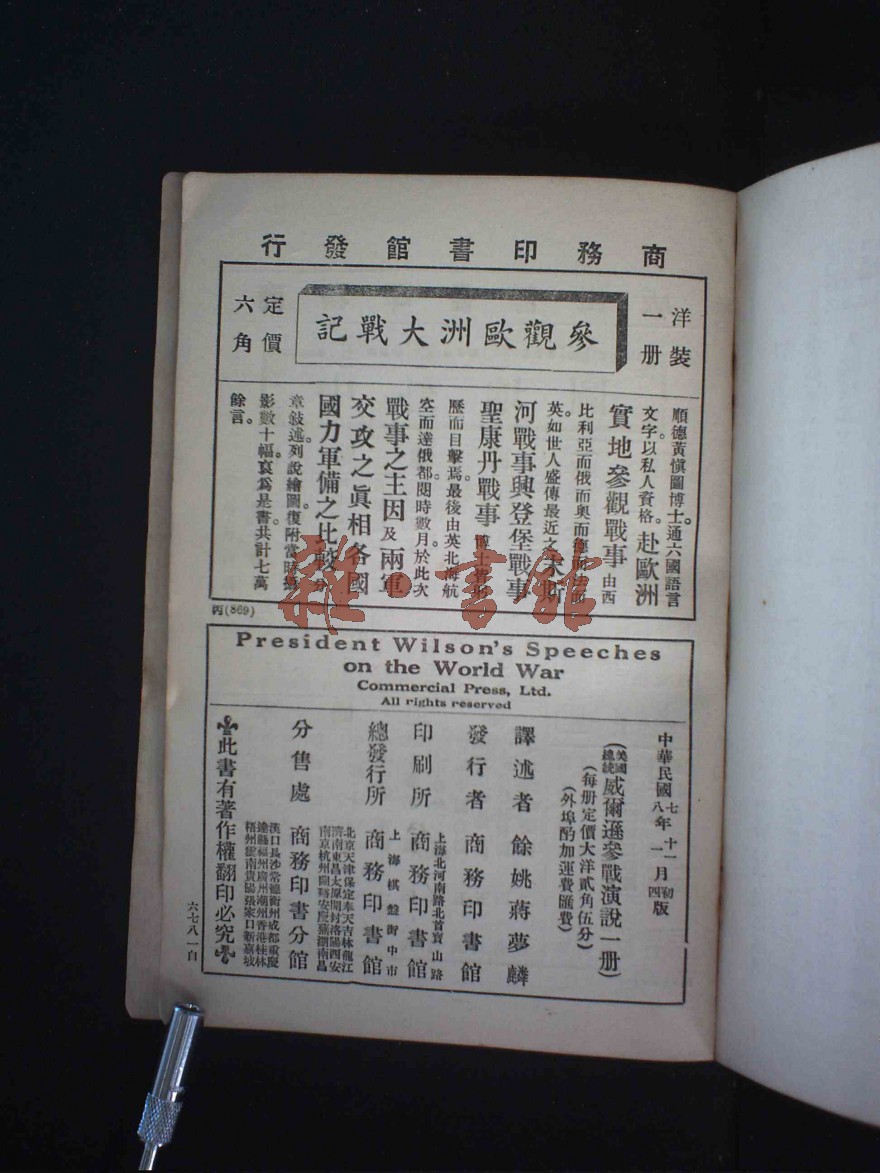 商務印書館發行
洋裝一册
參觀歐洲大戰記
定價六角
順德黃愼圖博士。通六國語言
文字。以私人資格。赴歐洲
實地參觀戰事。由西
比利亞而俄而奧而德而法而
英。如世人盛傳最近之宋斯
河戰事興登堡戰事
聖康丹戰事。博士皆親
歷而目擊焉。最後由英北海航
空而達俄都。閱時數月。於此次
戰事之主因及兩軍
交攻之眞相各國
國力軍備之比較。分
章敍述。列說繪圖。復附當時攝
影數十幅。裒爲是書。共計七萬
餘言。
丙(869)
President Wilson's Speeches
on the World War
Commercial Press, Ltd.
All rights reserved
中華民國七年十一月初版
八年一月四版
(美國總統威爾遜參戰演說一册)
(每册定價大洋貳角伍分)
(外埠酌加運費匯費)
譯述者 餘姚蔣夢麟
發行者 商務印書館
上海北河南路北首寶山路
印刷所 商務印書館
上海棋盤街中市
總發行所 商務印書館
北京天津保定奉天吉林龍江
濟南東昌太原開封洛陽西安
南京杭州蘭谿安慶蕪湖南昌
分售處 商務印書分館
漢口長沙常德衡州成都重慶
達縣福州廣州潮州香港桂林
梧州雲南貴陽張家口新嘉坡
此書有著作權翻印必究
六七八一自
雜·書館